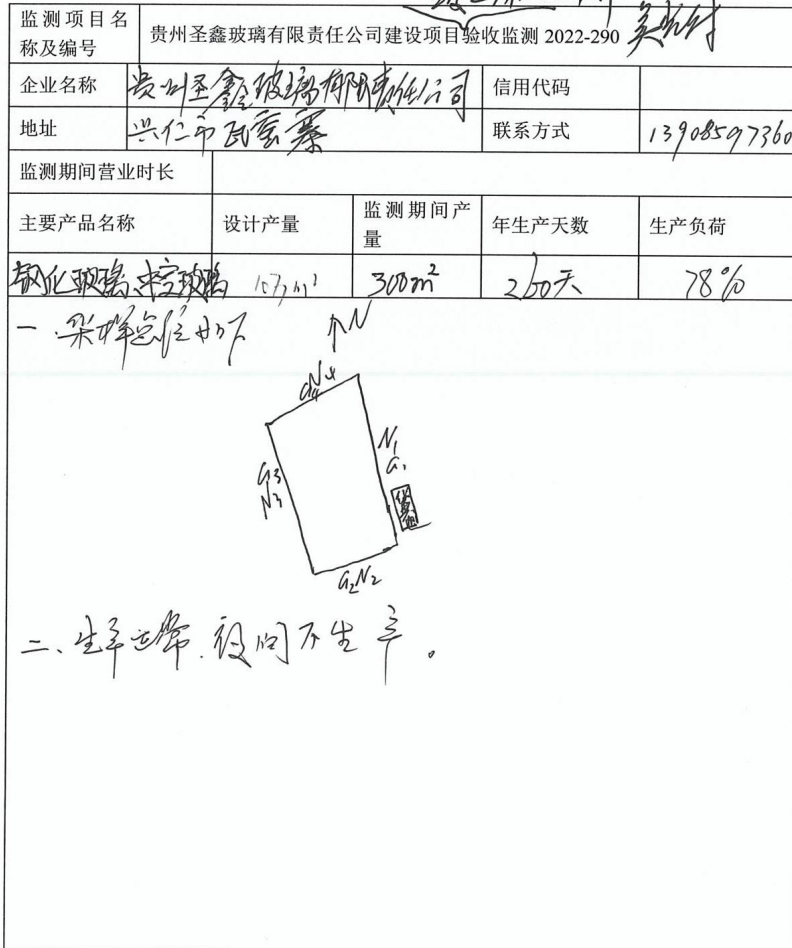 监测项目名
称及编号
贵州圣鑫玻璃有限责任公司建设项目验收监测 2022-290
企业名称 贵州圣鑫玻璃有限责任公司 信用代码
地址 兴仁市瓦窑寨 联系方式 13908597360
监测期间营业时长
主要产品名称 设计产量 监测期间产量 年生产天数 生产负荷
钢化玻璃、中空玻璃 300m² 260天 78%
一、采样点位如下
↑N
G4 N4
N1
G1
G3
N3
G2 N2
二、生产正常,夜间不生产。